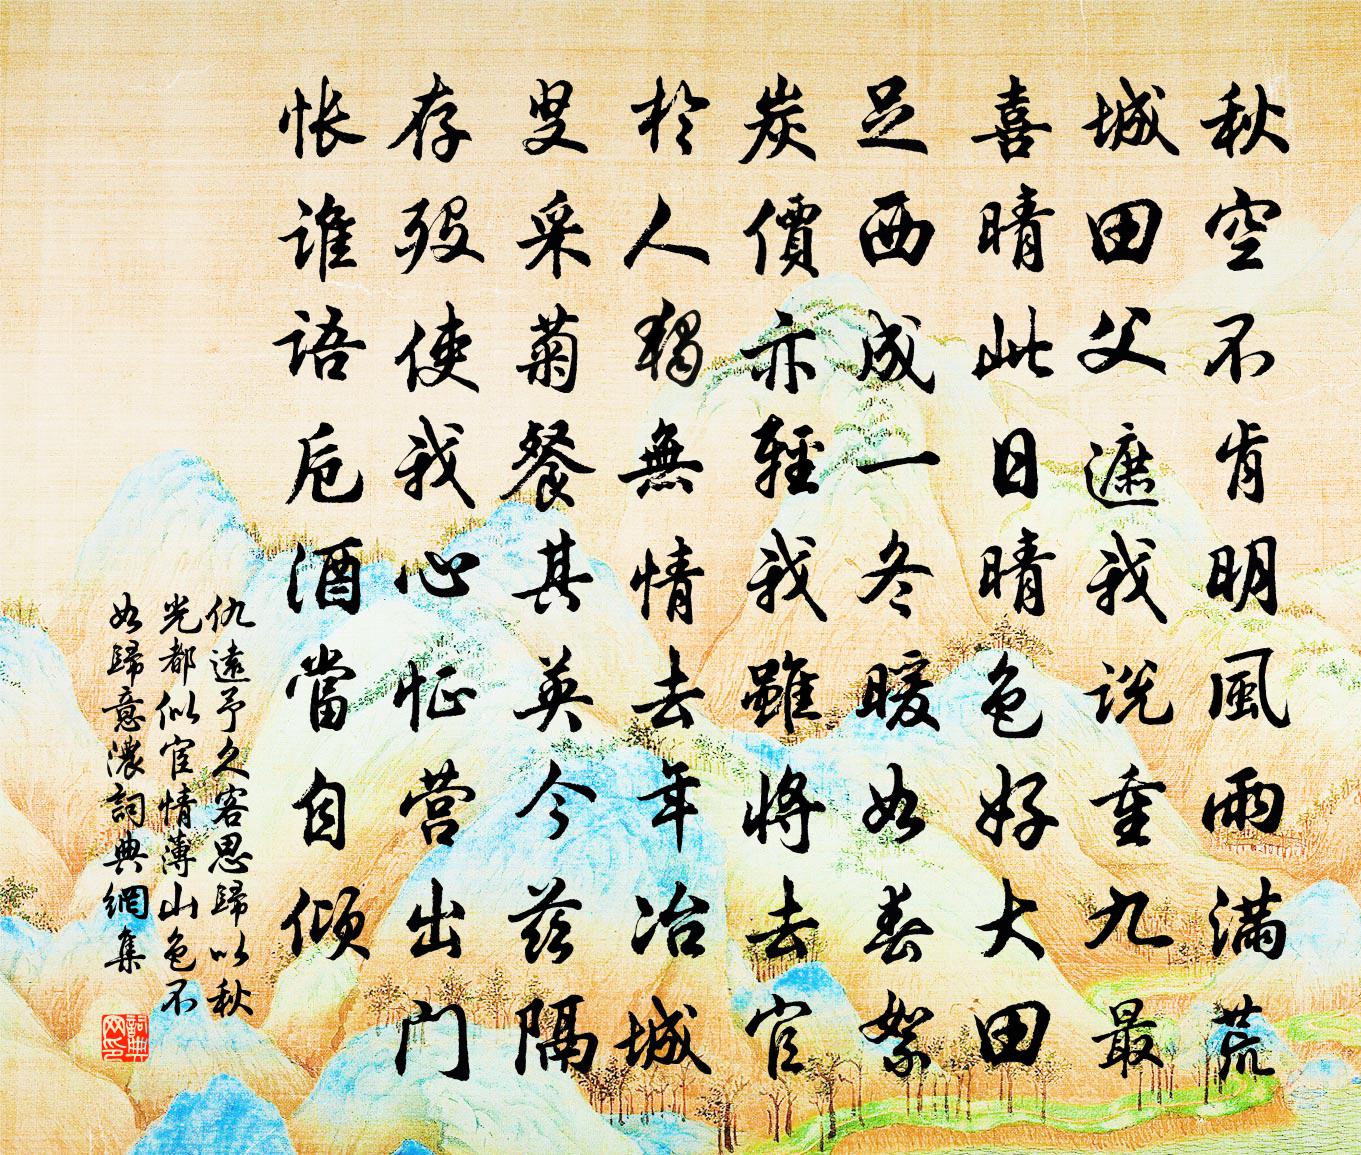 秋空不肯明風雨滿荒
城田父遮我説重九最
喜晴此日晴色好大田
足西成一冬暖如春絮
炭價亦輕我雖將去官
於人獨無情去年冶城
叟采菊餐其英今茲隔
存歿使我心怔营出門
悵誰語卮酒當自傾
仇遠予久客思歸以秋
光都似宦情薄山色不
如歸意濃詞典網集
詞典
网印